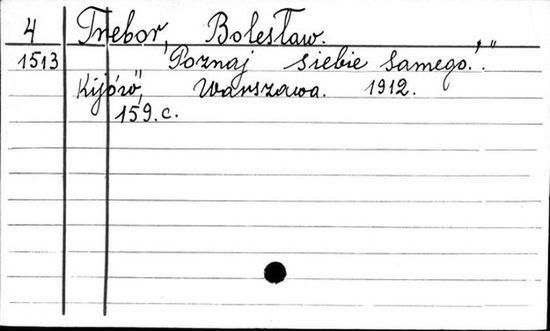 4 Trebor, Bolesław.
1513 "Poznaj siebie samego."
Kijów, Warszawa. 1912.
159.c.